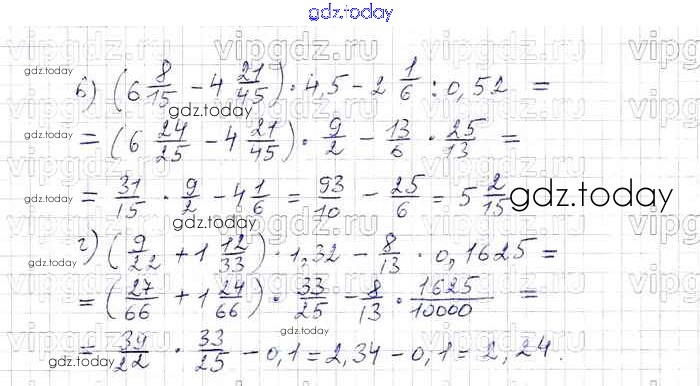 gdz.today
vipgdz.ru vipgdz.ru vip
в) (6 8/15 − 4 21/45) · 4,5 − 2 1/6 : 0,52 =
gdz.today
gdz.today
= (6 24/25 − 4 21/45) · 9/2 − 13/6 · 25/13 =
= 31/15 · 9/2 − 4 1/6 = 93/10 − 25/6 = 5 2/15
gdz.today
gdz.today
г) (9/22 + 1 12/33) · 1,32 − 8/13 · 0,1625 =
gdz.today
= (27/66 + 1 24/66) · 33/25 − 8/13 · 1625/10000 =
gdz.today
= 39/22 · 33/25 − 0,1 = 2,34 − 0,1 = 2,24.
gdz.today